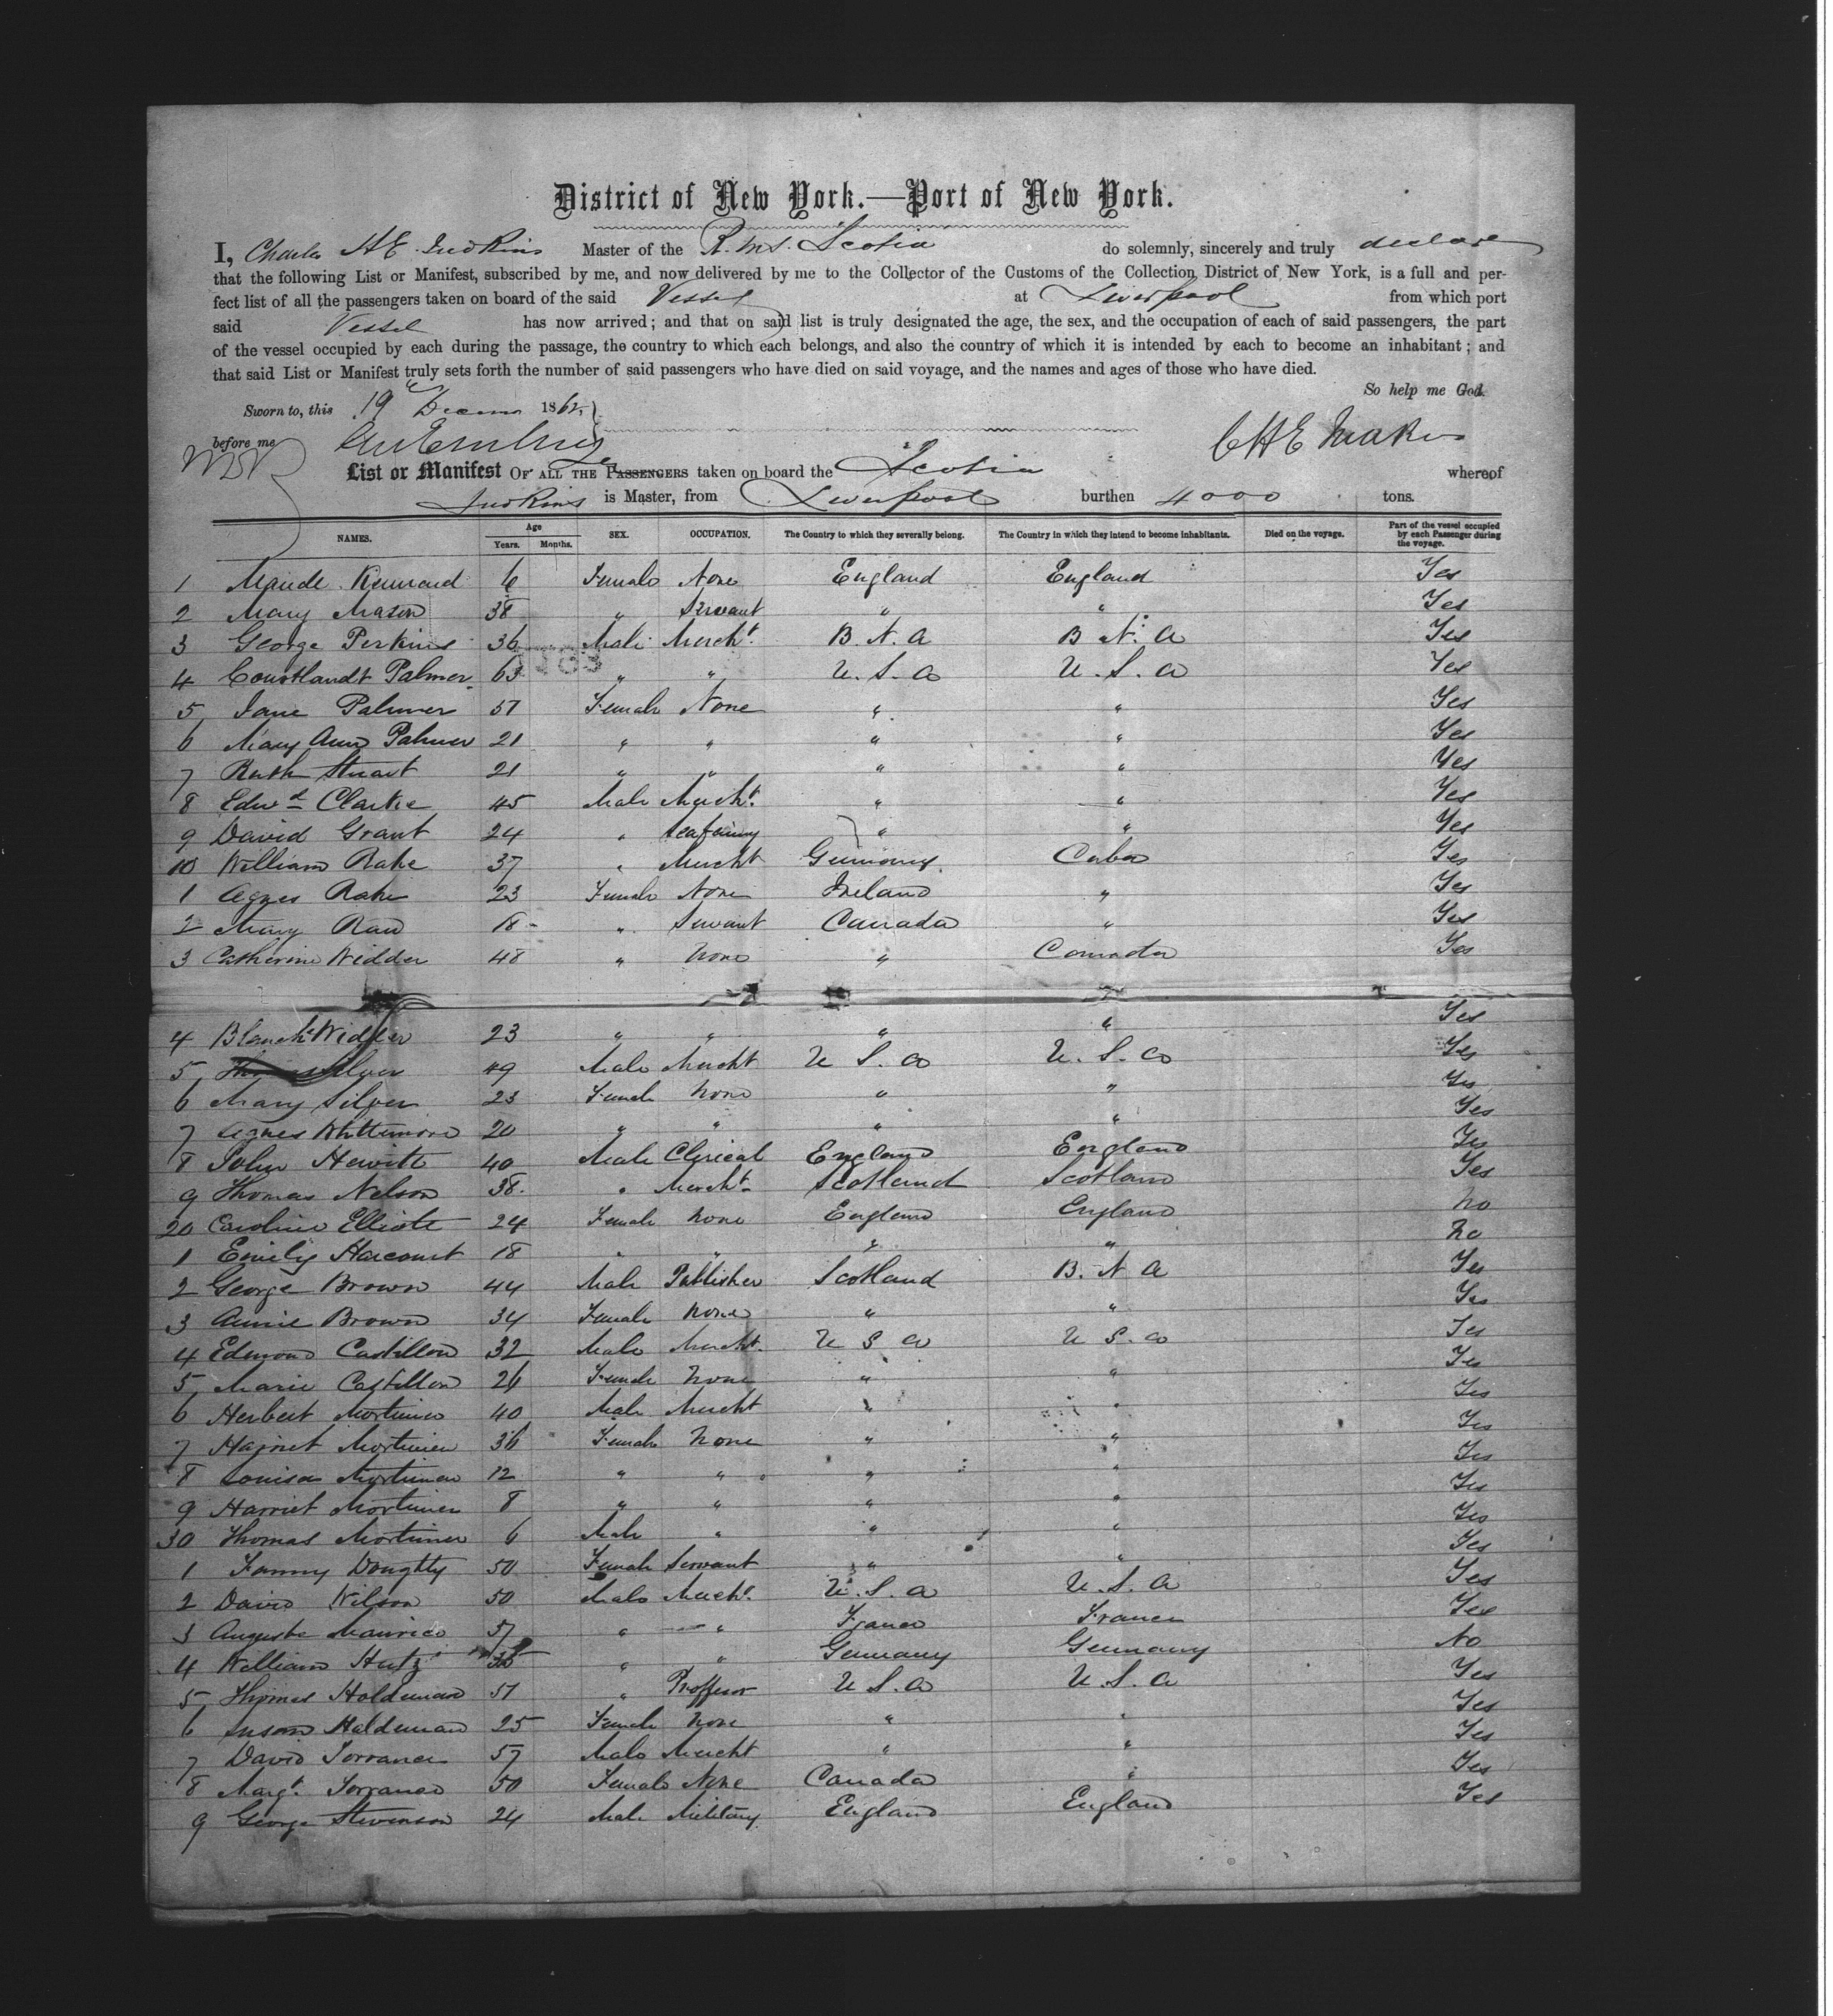 District of New York.—Port of New York.
I, Charles H E Judkins Master of the R. M. S. Scotia do solemnly, sincerely and truly declare
that the following List or Manifest, subscribed by me, and now delivered by me to the Collector of the Customs of the Collection District of New York, is a full and per-
fect list of all the passengers taken on board of the said Vessel at Liverpool from which port
said Vessel has now arrived; and that on said list is truly designated the age, the sex, and the occupation of each of said passengers, the part
of the vessel occupied by each during the passage, the country to which each belongs, and also the country of which it is intended by each to become an inhabitant; and
that said List or Manifest truly sets forth the number of said passengers who have died on said voyage, and the names and ages of those who have died.
So help me God.
Sworn to, this 19 1862
before me
List or Manifest OF ALL THE PASSENGERS taken on board the Scotia whereof
Judkins is Master, from Liverpool burthen 4000 tons.
NAMES. Age Years. Months. SEX. OCCUPATION. The Country to which they severally belong. The Country in which they intend to become inhabitants. Died on the voyage. Part of the vessel occupied by each Passenger during the voyage.
1 Maude 6 Female None England England Yes
2 Mary Mason 38 " Servant " " Yes
3 George Perkins 36 Male Mercht. B. N. A B. N. A Yes
4 Courtlandt Palmer 63 " " U. S. A U. S. A Yes
5 Jane Palmer 57 Female None " " Yes
6 Mary Ann Palmer 21 " " " " Yes
7 Ruth Stuart 21 " " " " Yes
8 Edwd Clarke 45 Male Mercht. " " Yes
9 David Grant 24 " " " Yes
10 William Rahe 37 " Mercht Germany Cuba Yes
1 Agnes Rahe 23 Female None Ireland " Yes
2 Mary Raw 18 " Servant Canada " Yes
3 Catherine Widder 48 " None " Canada Yes
4 Blanch Widder 23 " " " " Yes
5 Silver 49 Male Mercht U S. A U. S. A Yes
6 Mary Silver 23 Female None " " Yes
7 Agnes Whittemore 20 " " " " Yes
8 John Hewitt 40 Male Clerical England England Yes
9 Thomas Nelson 38 " Mercht. Scotland Scotland Yes
20 Caroline Elliott 24 Female None England England No
1 Emily Harcourt 18 " " " " No
2 George Brown 44 Male Publisher Scotland B. N A Yes
3 Annie Brown 34 Female None " " Yes
4 Edmond Castillon 32 Male Mercht. U S A U S. A Yes
5 Marie Castillon 26 Female None " " Yes
6 Herbert Mortimer 40 Male Mercht " " Yes
7 Harriet Mortimer 36 Female None " " Yes
8 Louisa Mortimer 12 " " " " Yes
9 Harriet Mortimer 8 " " " " Yes
30 Thomas Mortimer 6 Male " " " Yes
1 Fanny Doughty 50 Female Servant " " Yes
2 David Wilson 50 Male Mercht. U. S. A U. S. A Yes
3 Auguste Maurice 57 " " France France Yes
4 William " " Germany Germany No
5 Thomas Haldeman 51 " Proffesor U S. A U. S. A Yes
6 Susan Haldeman 25 Female None " " Yes
7 David Torrance 57 Male Mercht " " Yes
8 Margt. Torrance 50 Female None Canada " Yes
9 George Stevenson 24 Male Military England England Yes